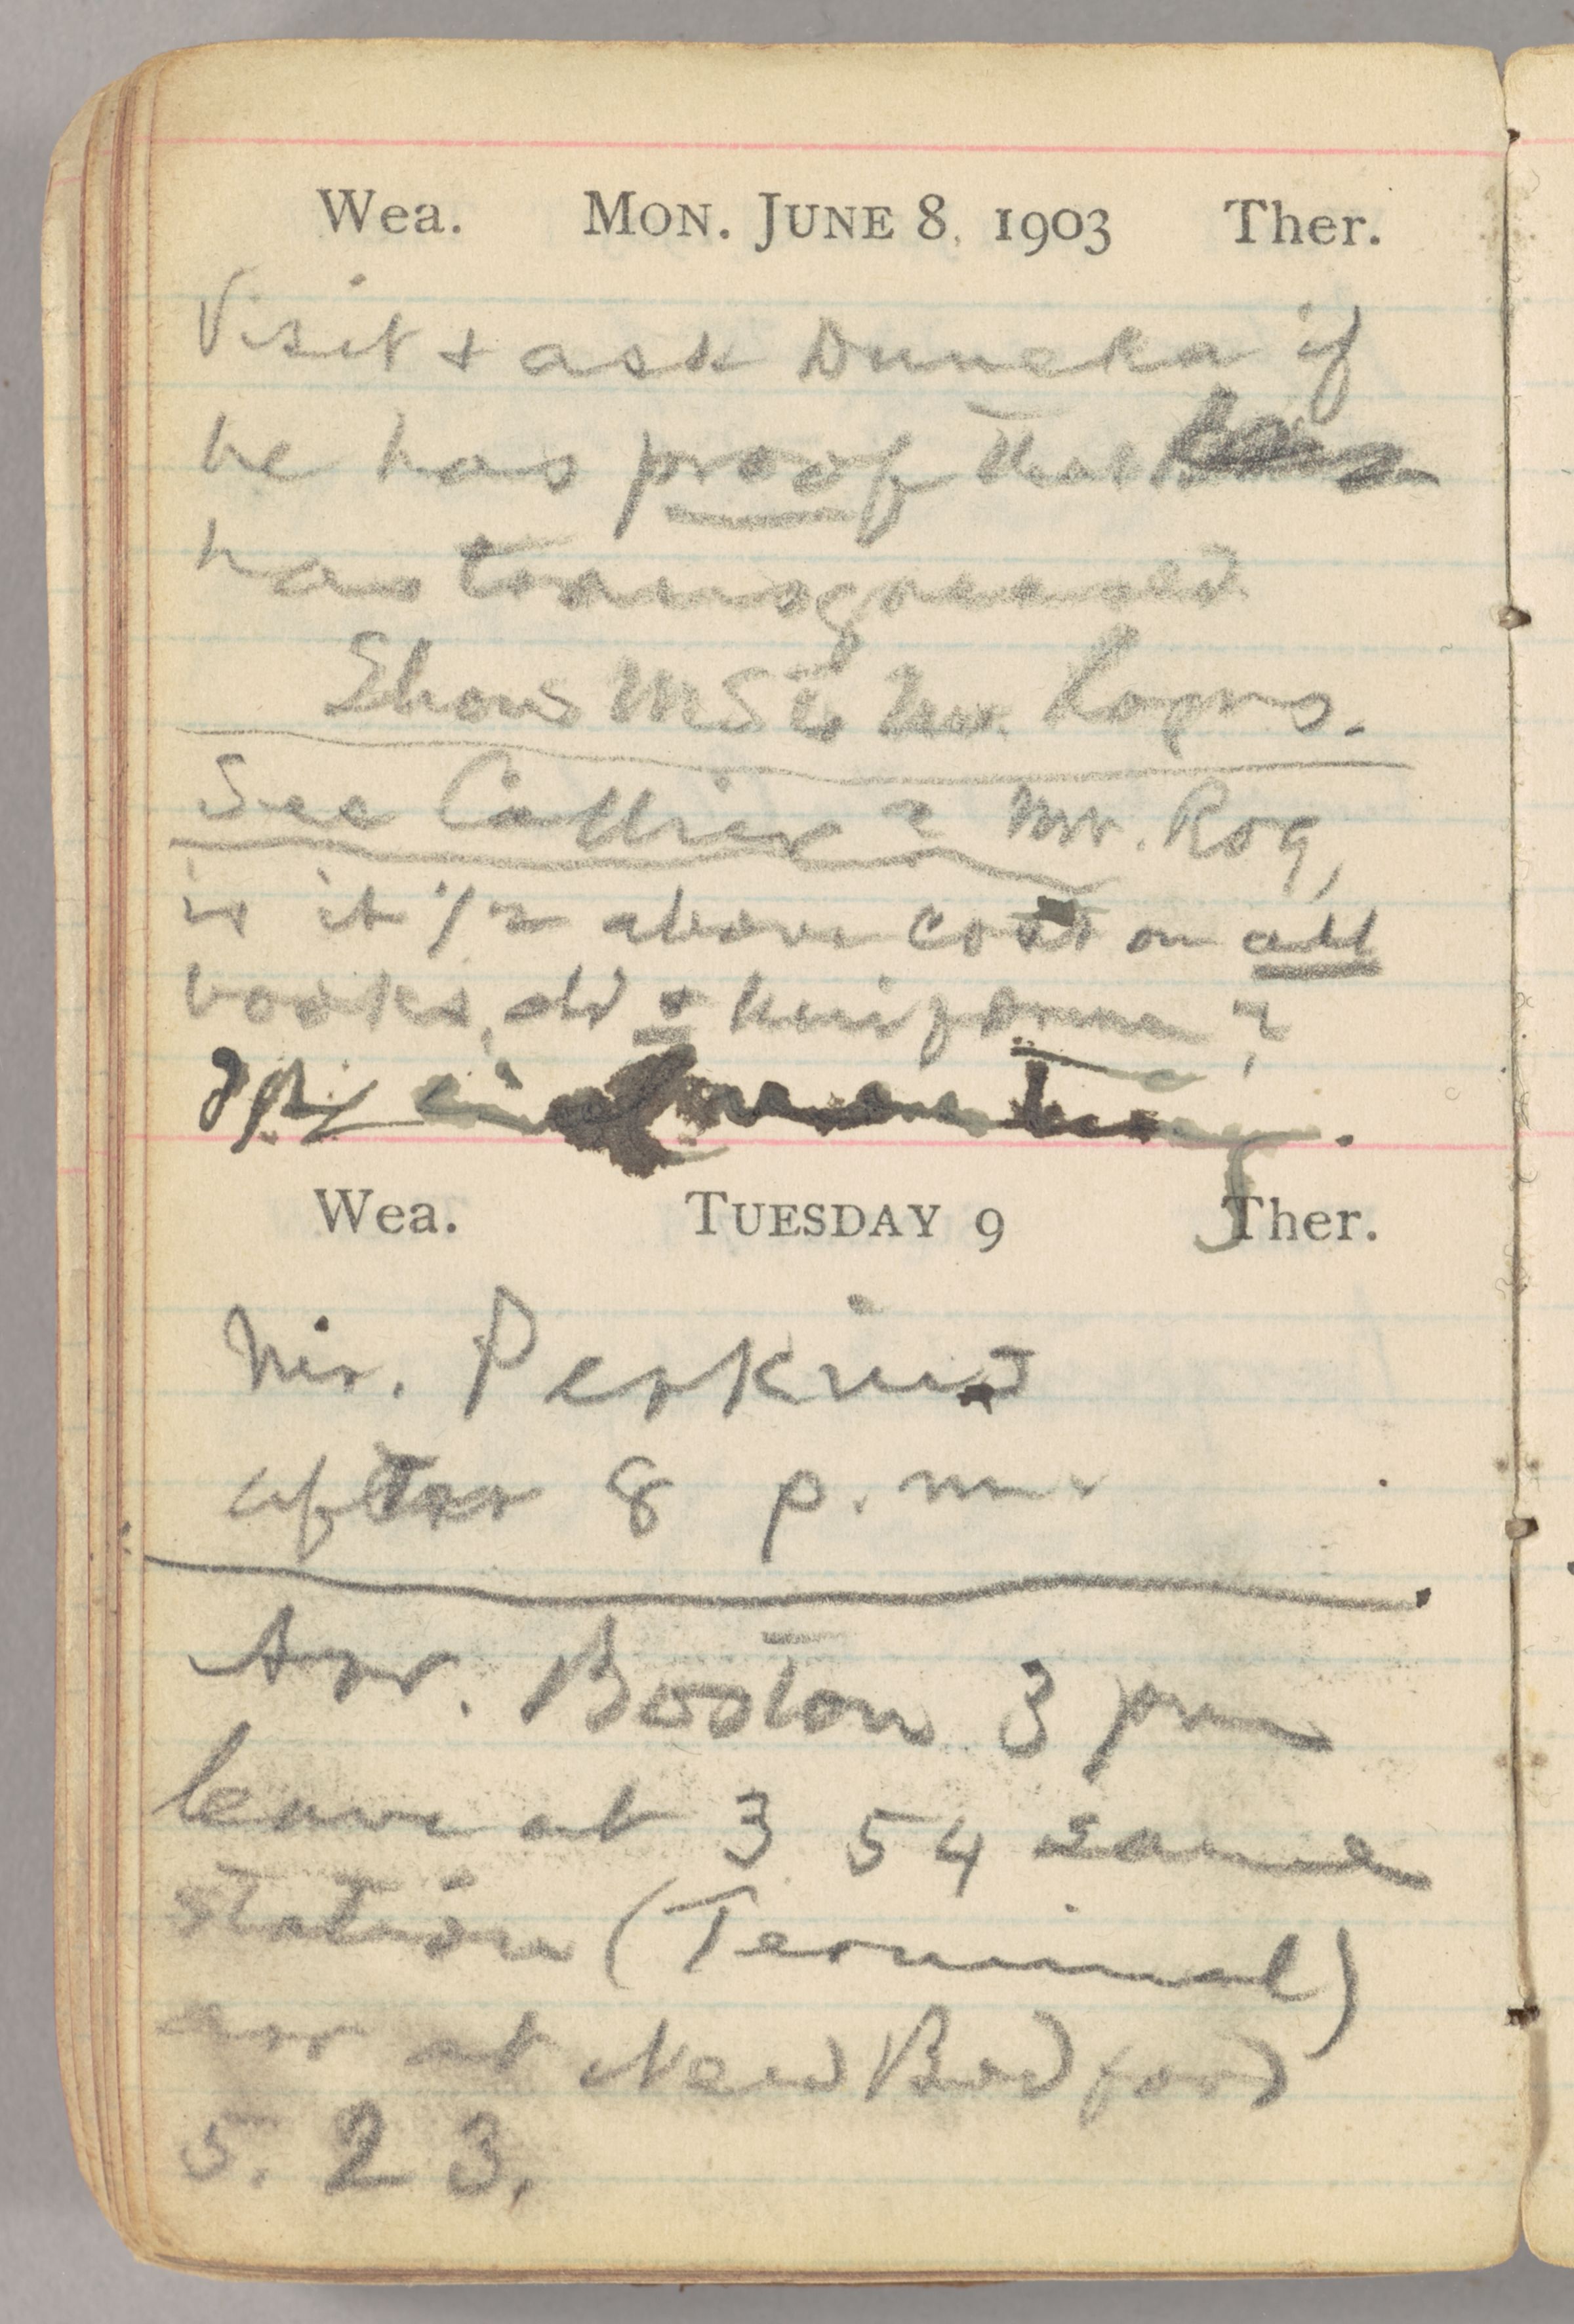 Wea. MON. JUNE 8, 1903 Ther.
Visit & ask Duneka if
he has proof that
has transgressed
Show MS to Mr. Rogers.
See Collier & Mr. Rog,
is it 1/2 above cost on all
books, old &
Wea. TUESDAY 9 Ther.
Mr. Perkins
after 8 p.m.
Arr. Boston 3 pm
leave at 3 54 same
station (Terminal)
arr at New Bedford
5. 23.